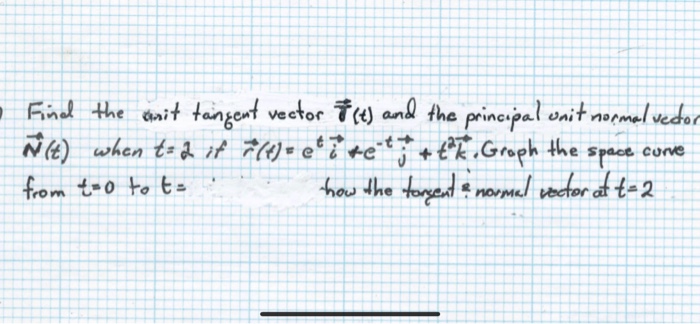 Find the unit tangent vector T⃗(t) and the principal unit normal vector
N⃗(t) when t=2 if r⃗(t) = e^t i⃗ + e^-t j⃗ + t²k⃗. Graph the space curve
from t=0 to t= how the tangent & normal vector at t=2